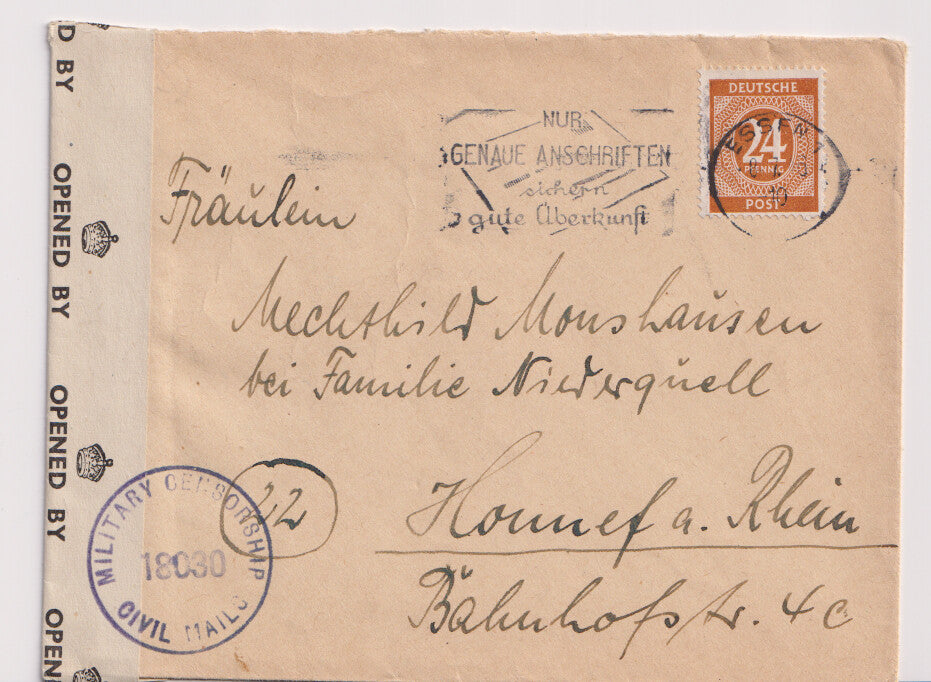 D BY
OPENED BY
OPENED BY
OPEN
NUR
GENAUE ANSCHRIFTEN
sichern
gute Überkunft
DEUTSCHE
24
PFENNIG
POST
ESSEN 1
Fräulein
Mechthild Monshausen
bei Familie Niederquell
22
Honnef a. Rhein
Bahnhofstr. 4c
MILITARY CENSORSHIP
18030
CIVIL MAILS